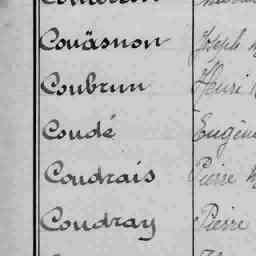 Couäsnon Joseph
Coubrun Henri
Coudé Eugène
Coudrais Pierre
Coudray Pierre